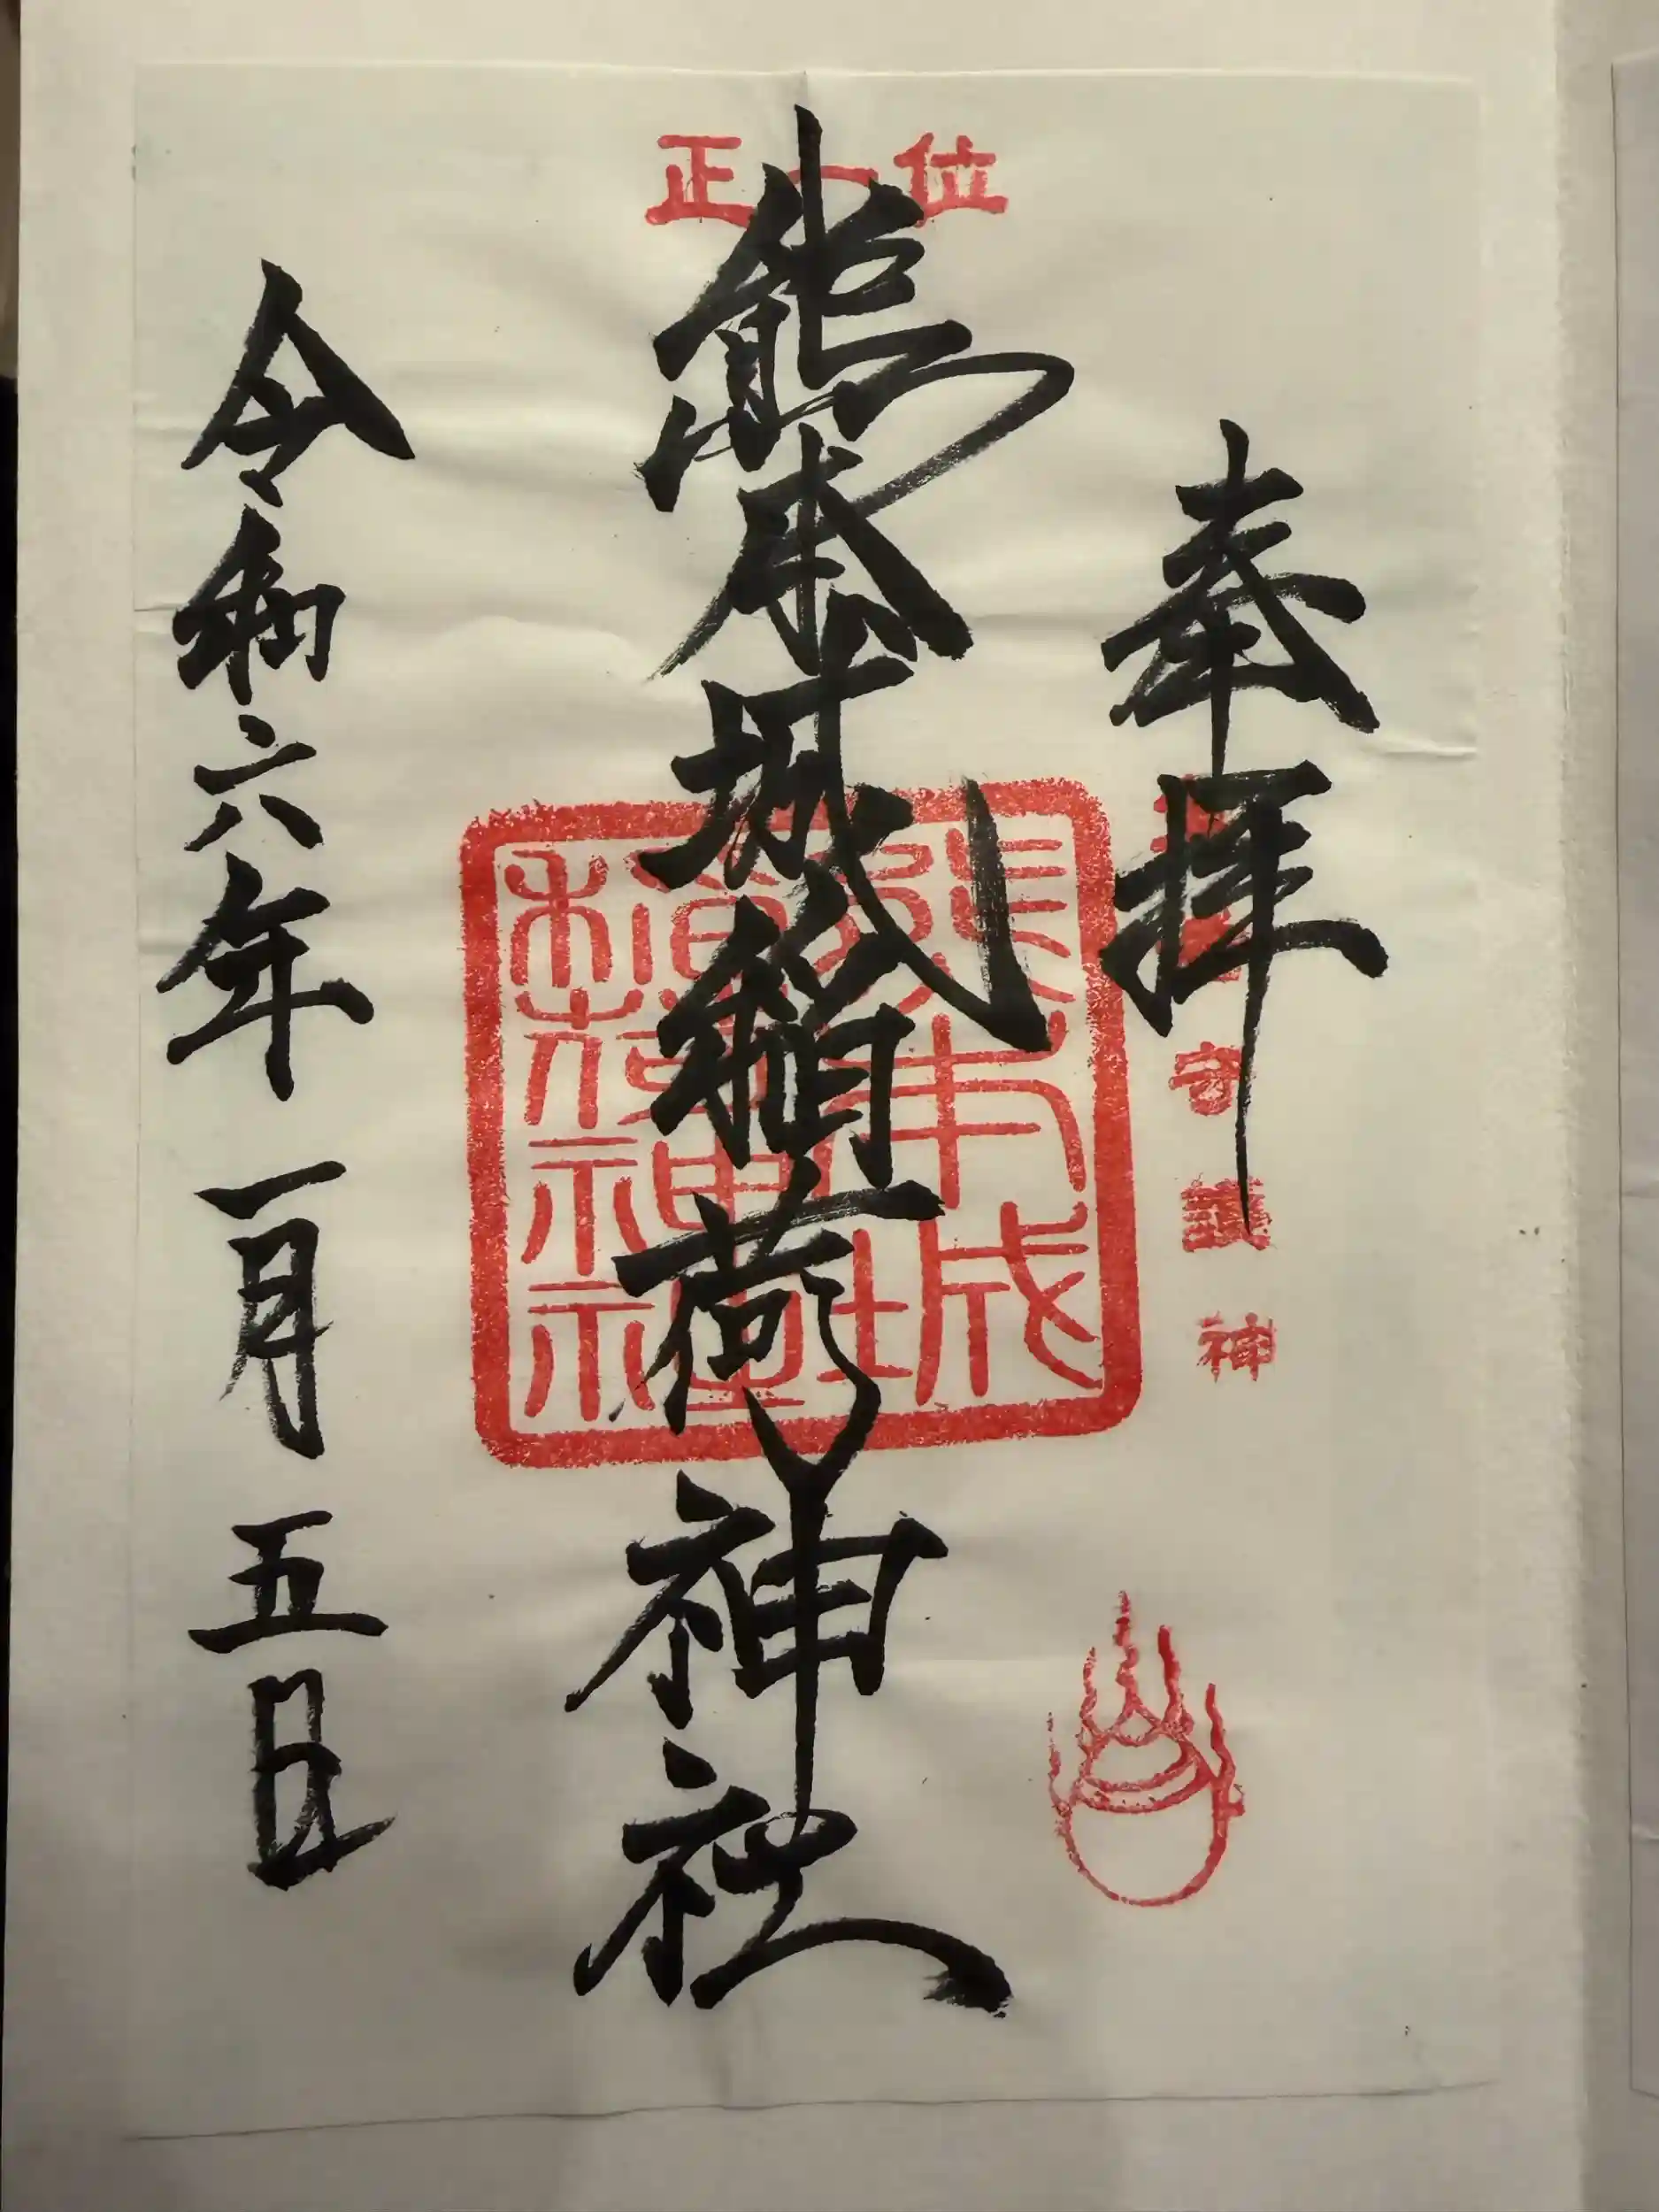 奉拝
正一位
熊本城稲荷神社
熊本城
稲荷神社
守護神
令和六年一月五日